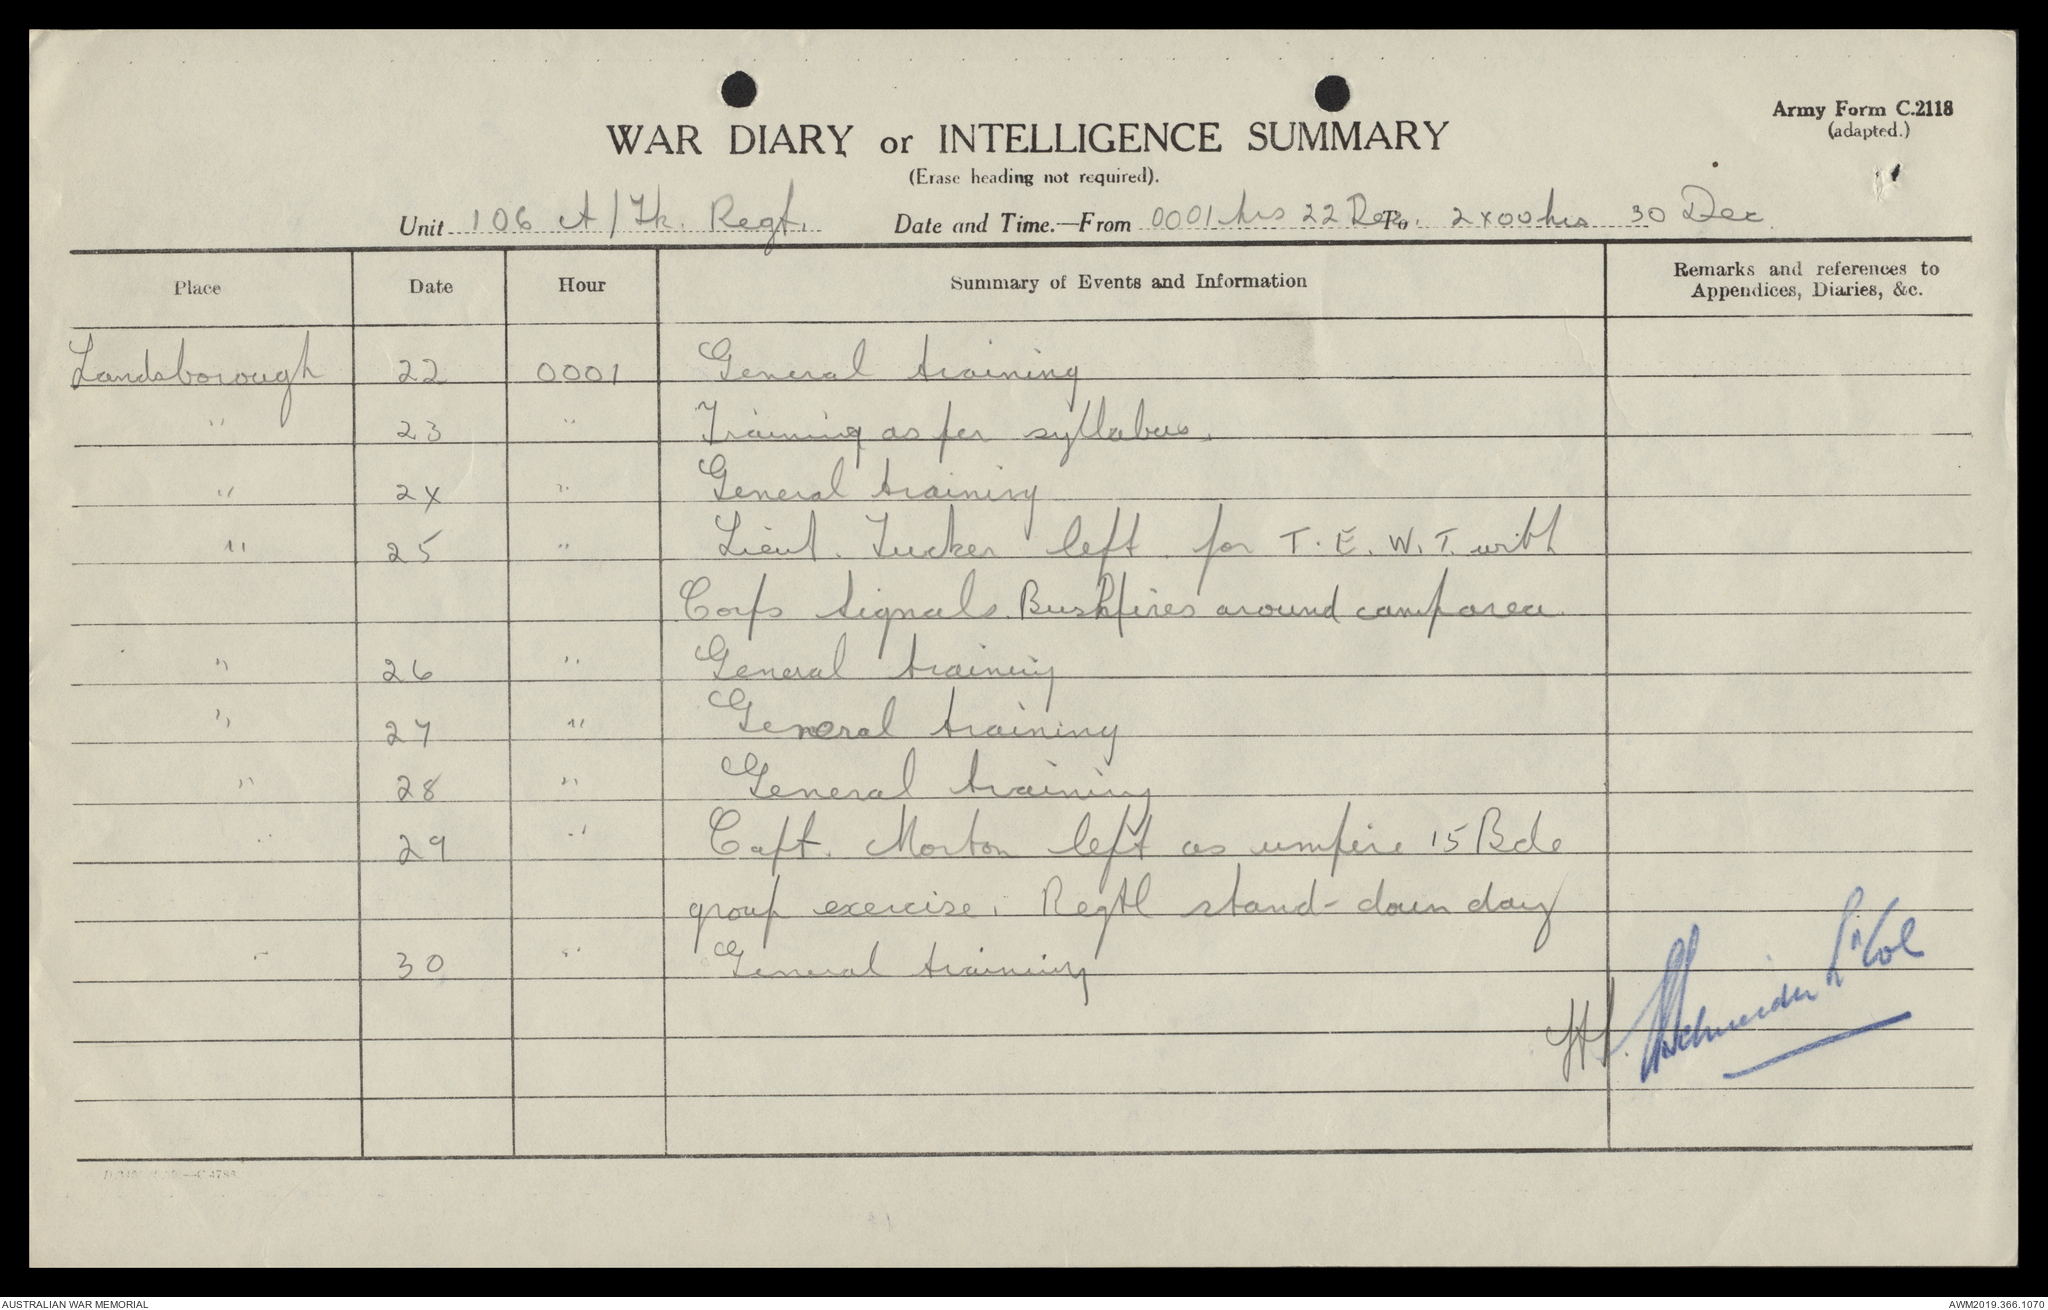 Army Form C.2118
(adapted.)
WAR DIARY or INTELLIGENCE SUMMARY
(Erase heading not required).
Unit 106 A/Tk. Regt. Date and Time.—From 0001 hrs 22 Dec. To 2400 hrs 30 Dec
Place Date Hour Summary of Events and Information Remarks and references to Appendices, Diaries, &c.
Landsborough 22 0001 General training
" 23 " Training as per syllabus.
" 24 " General training
" 25 " Lieut. Tucker left for T.E.W.T. with
Corps signals. Bushfires around camp area
" 26 " General training
" 27 " General training
" 28 " General training
29 " Capt. Morton left as umpire 15 Bde
group exercise. Regtl stand-down day
" 30 " General training
Schneider Lt Col
AUSTRALIAN WAR MEMORIAL
AWM2019.366.1070